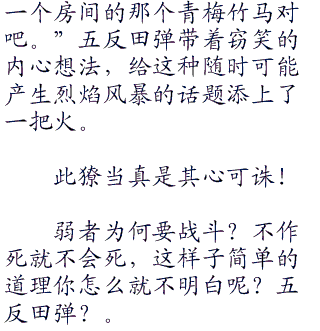 一个房间的那个青梅竹马对
吧。”五反田弹带着窃笑的
内心想法，给这种随时可能
产生烈焰风暴的话题添上了
一把火。
此獠当真是其心可诛！
弱者为何要战斗？不作
死就不会死，这样子简单的
道理你怎么就不明白呢？五
反田弹？。